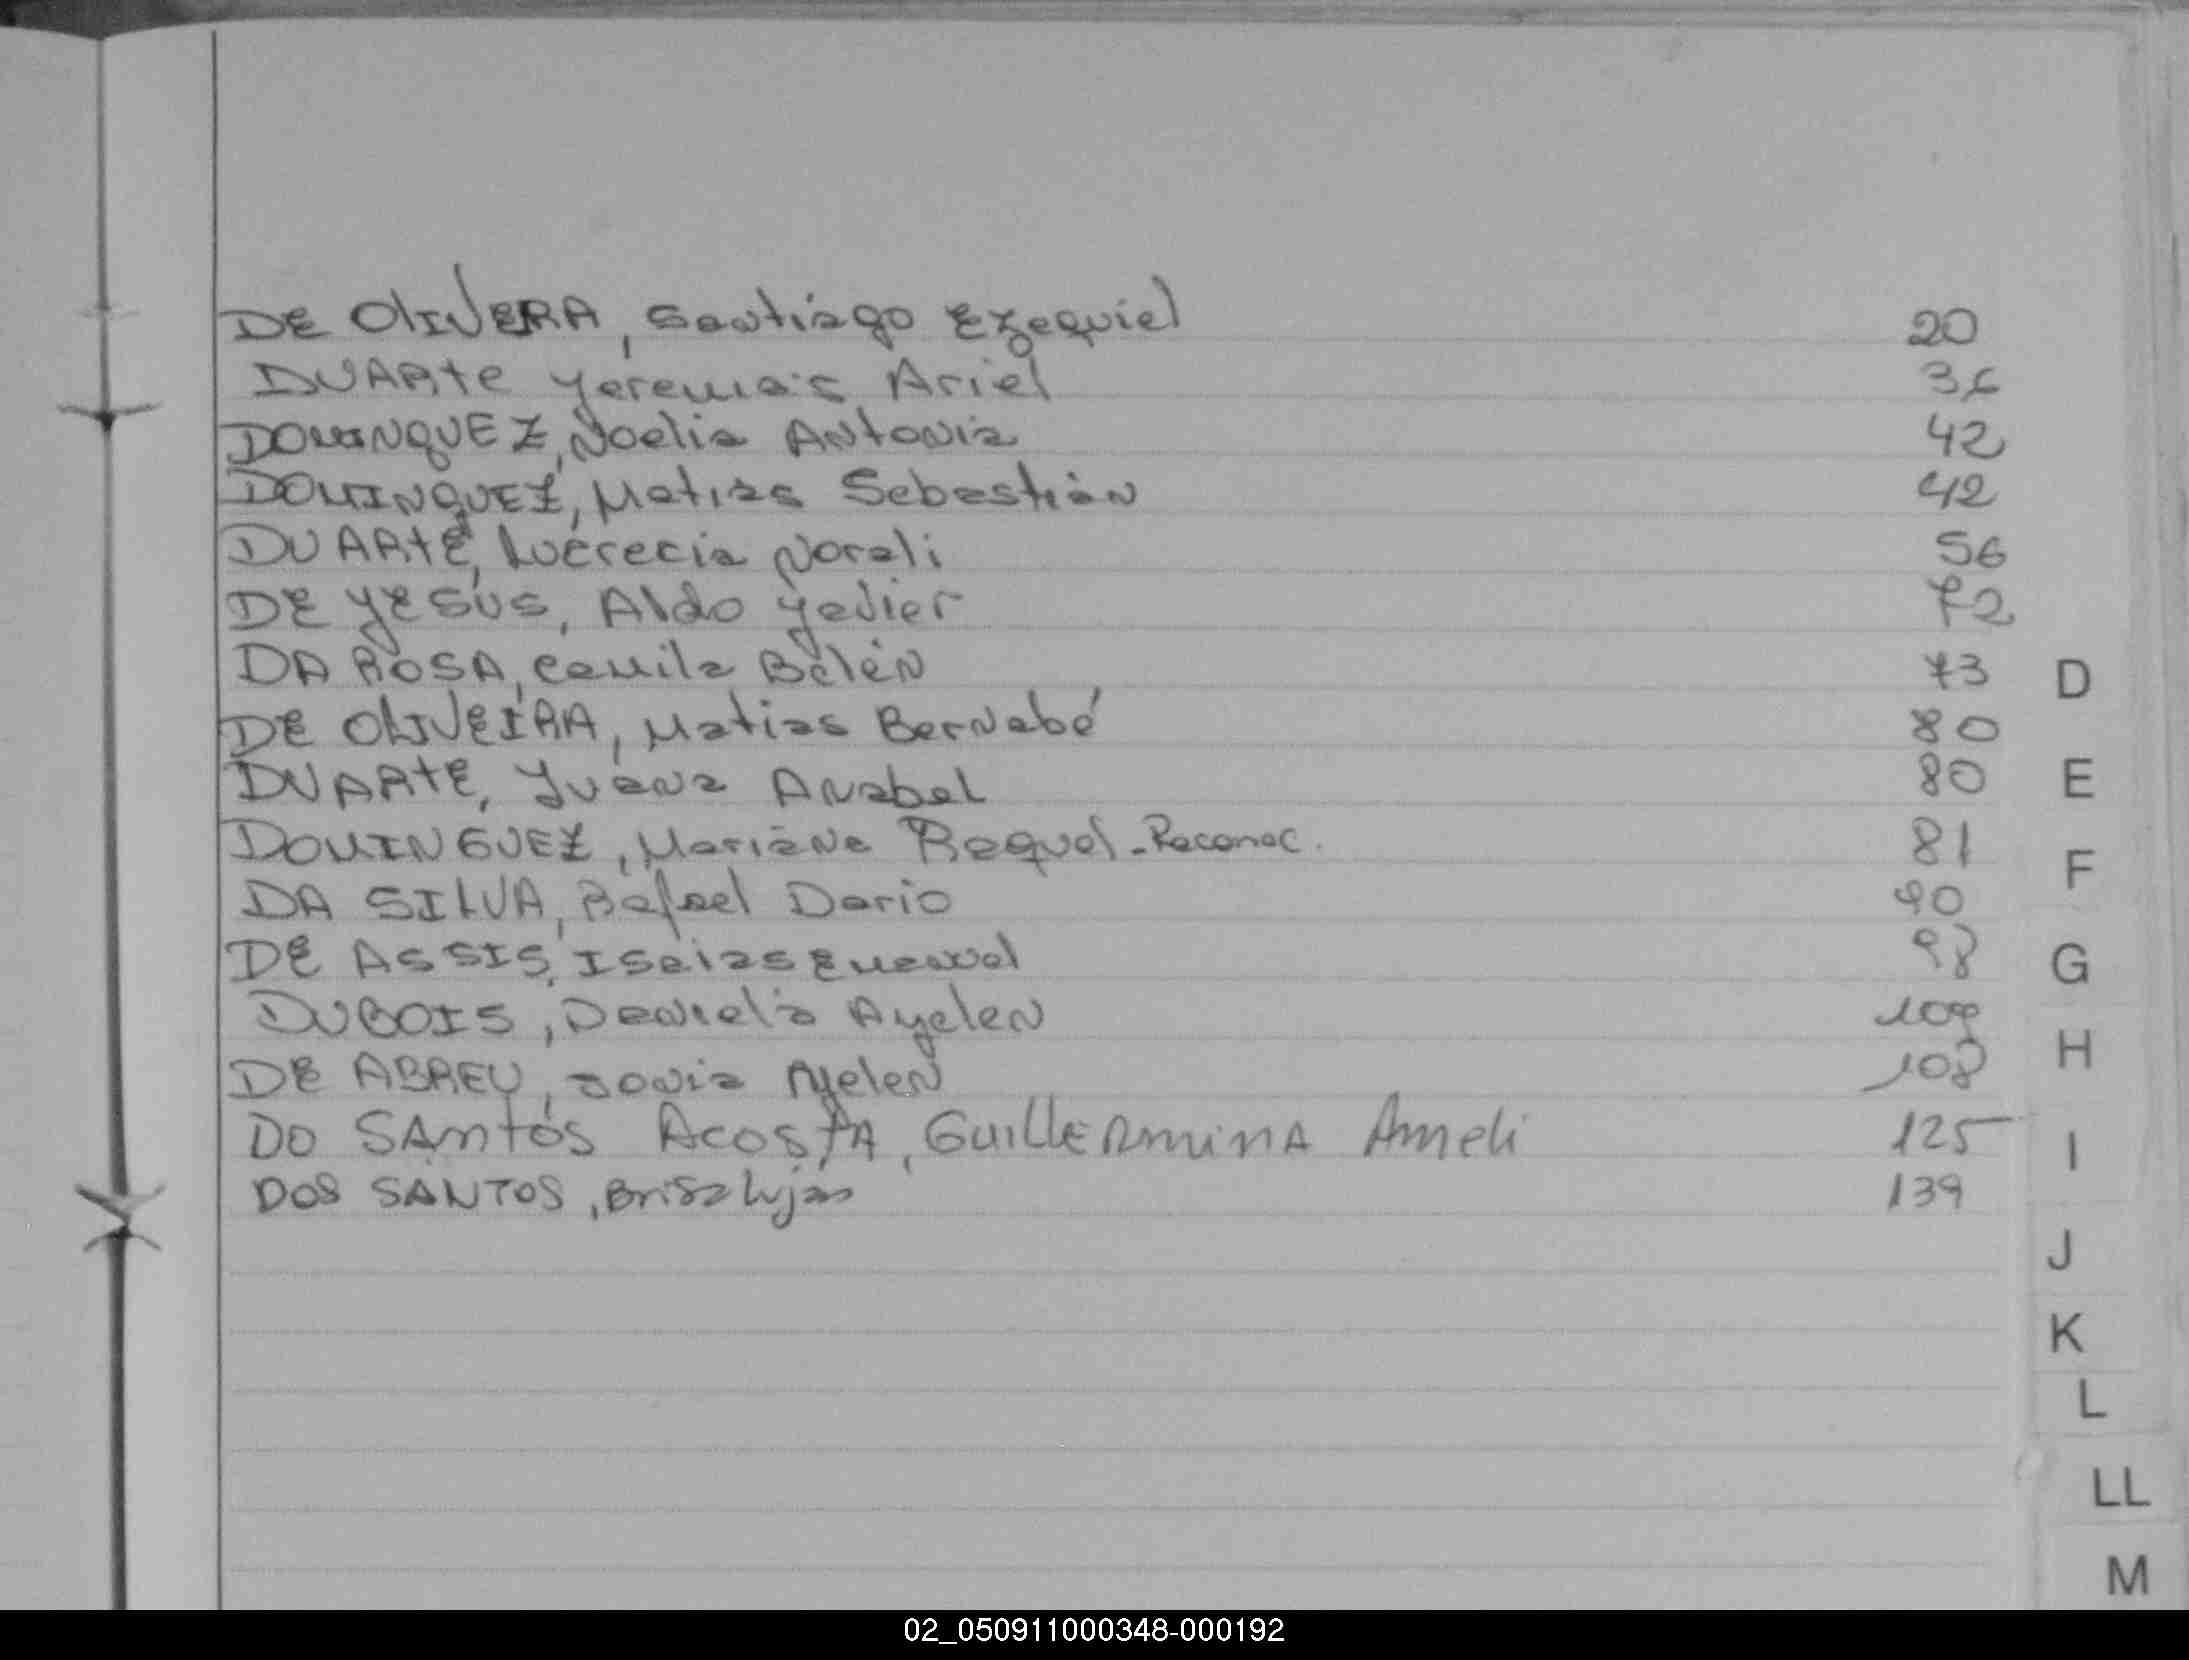 DE OlIVERA, Santiago Ezequiel 20
DUARte Yeremías Ariel 36
DOMINQUEZ, Noelia ANtoNia 42
DOMINGUEZ, Matias Sebastián 42
DUARtE, Lucrecia Norali 56
DE YESUS, Aldo Yavier 72
DA ROSA, Camila Belén 73
D
DE OLIVEIRA, Matias BerNabé 80
DUARtE, Yuana ANabel 80
E
DOMINGUEZ, MariaNa Raquel - Reconoc. 81
F
DA SILVA, Rafael Dario 90
DE ASSIS, Isaias Emanuel 98
G
DUBOIS, Daniela AyeleN
DE ABREU, SoNia AyeleN 108
H
DO SAntos AcosTA, GuiLLERminA Ameli 125
I
DOS SANTOS, Brisa Lujan 139
J
K
L
LL
M
02_050911000348-000192